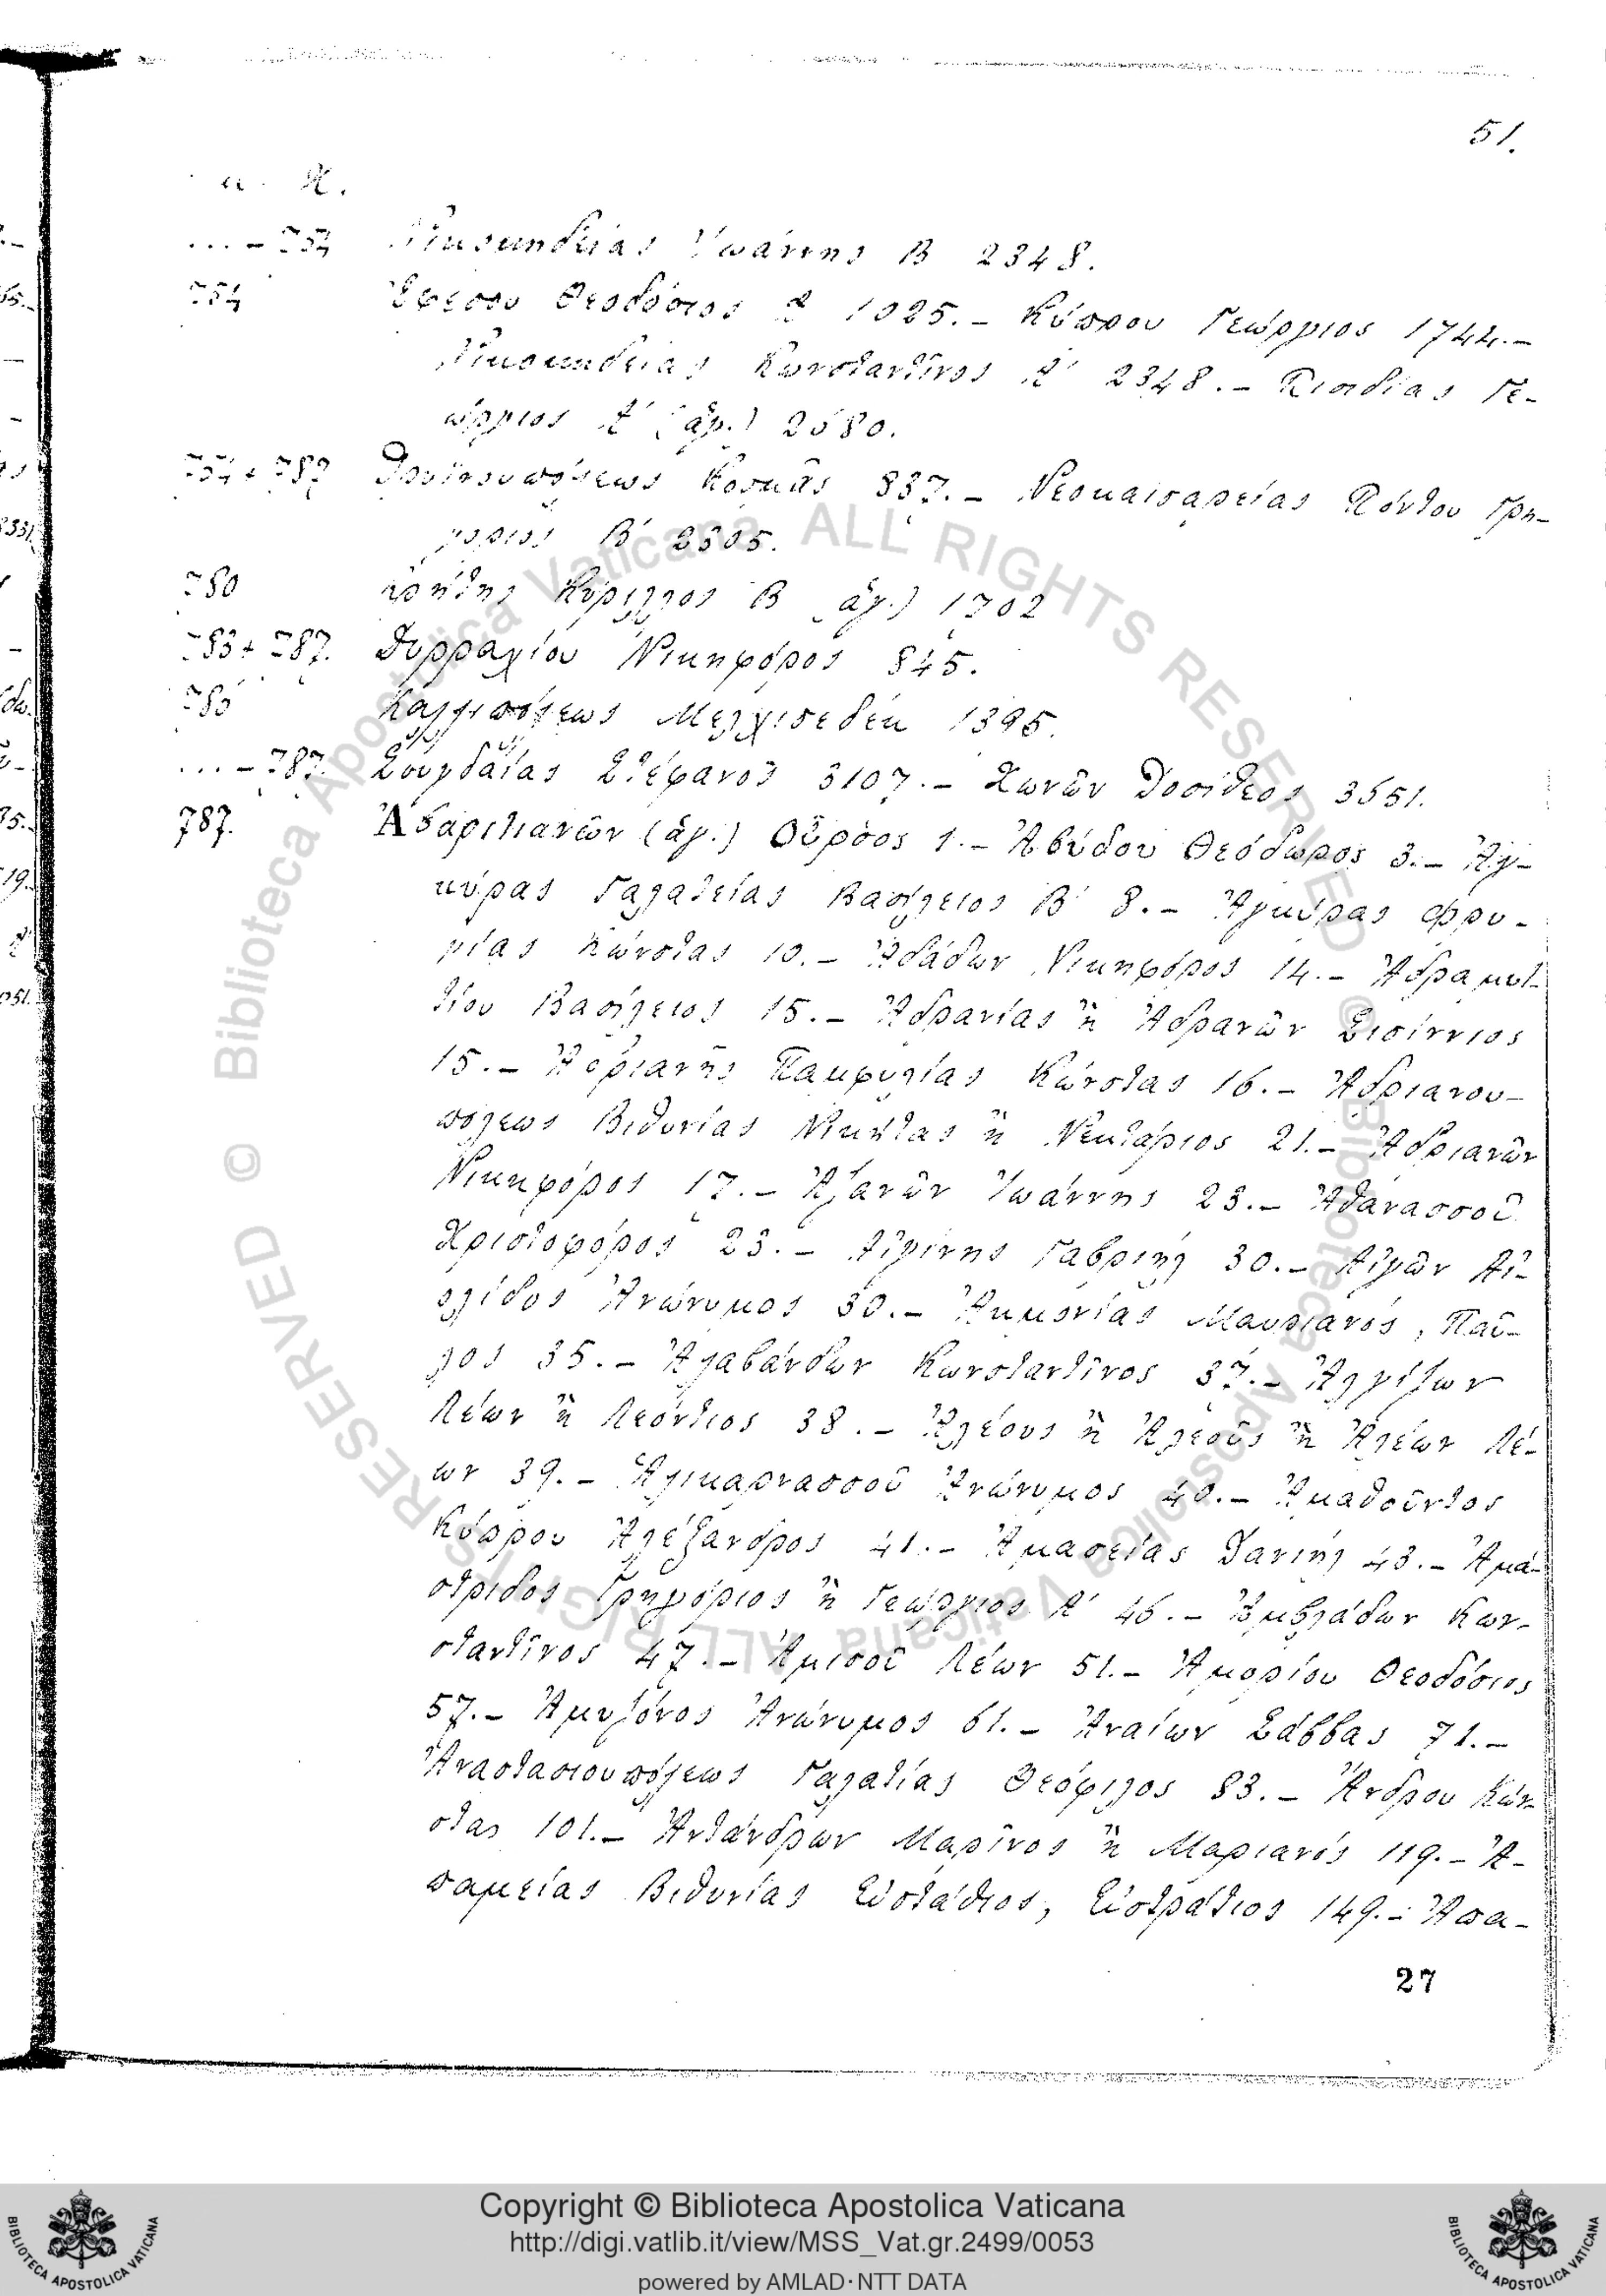 51.
μ. Χ.
... – 754 Νικομηδείας Ἰωάννης Β 2348.
754 Ἐφέσου Θεοδόσιος Α 1025. – Κύπρου Γεώργιος 1744. –
Νικομηδείας Κωνσταντῖνος Α' 2348. – Πισιδίας Γε-
ώργιος Α' (ἁγ.) 2680.
754 + 787 Κοσμᾶς 837. – Νεοκαισαρείας Πόντου Γρη-
γόριος Β' 2305.
780 Κρήτης Κύριλλος Β (ἁγ.) 1702
783 + 787. Δυρραχίου Νικηφόρος 845.
Καλλιπόλεως Μελχισεδέκ 1395.
... – 787. Σουγδαΐας Στέφανος 3107. – Χωνῶν Δοσίθεος 3651.
787. Ἀβαριτιανῶν (ἁγ.) Οὔρσος 1. – Ἀβύδου Θεόδωρος 3. – Ἀγ-
κύρας Γαλατείας Βασίλειος Β' 8. – Ἀγκύρας Φρυ-
γίας Κώνστας 10. – Ἀδάδων Νικηφόρος 14. – Ἀδραμυτ-
τίου Βασίλειος 15. – Ἀδρανίας ἢ Ἀδρανῶν Σισίννιος
15. – Ἀδριανῆς Παμφυλίας Κώνστας 16. – Ἀδριανου-
πόλεως Βιθυνίας Νικήτας ἢ Νεκτάριος 21. – Ἀδριανῶν
Νικηφόρος 17. – Ἀζανῶν Ἰωάννης 23. – Ἀθανασσοῦ
Χριστοφόρος 23. – Αἰγίνης Γαβριήλ 30. – Αἰγῶν Αἰ-
ολίδος Ἀνώνυμος 30. – Ἀκμονίας Μαυριανός, Παῦ-
λος 35. – Ἀλαβάνδων Κωνσταντῖνος 37. – Ἀλγίζων
Λέων ἢ Λεόντιος 38. – Ἀλέους ἢ Ἀλεοῦς ἢ Ἀλέων Λέ-
ων 39. – Ἁλικαρνασσοῦ Ἀνώνυμος 40. – Ἀμαθοῦντος
Κύπρου Ἀλέξανδρος 41. – Ἀμασείας Δανιήλ 43. – Ἀμά-
στριδος Γρηγόριος ἢ Γεώργιος Α' 46. – Ἀμβλάδων Κων-
σταντῖνος 47. – Ἀμισοῦ Λέων 51. – Ἀμορίου Θεοδόσιος
57. – Ἀμυζόνος Ἀνώνυμος 61. – Ἀναίων Σάββας 71. –
Ἀναστασιουπόλεως Γαλατίας Θεόφιλος 83. – Ἄνδρου Κών-
στας 101. – Ἀντάνδρων Μαρῖνος ἢ Μαριανός 119. – Ἀ-
παμείας Βιθυνίας Εὐστάθιος, Εὐστράτιος 149. – Ἀπα-
27
© Biblioteca Apostolica Vaticana ALL RIGHTS RESERVED
© Biblioteca Apostolica Vaticana ALL RIGHTS RESERVED
Copyright © Biblioteca Apostolica Vaticana
http://digi.vatlib.it/view/MSS_Vat.gr.2499/0053
powered by AMLAD·NTT DATA
BIBLIOTECA APOSTOLICA VATICANA
BIBLIOTECA APOSTOLICA VATICANA